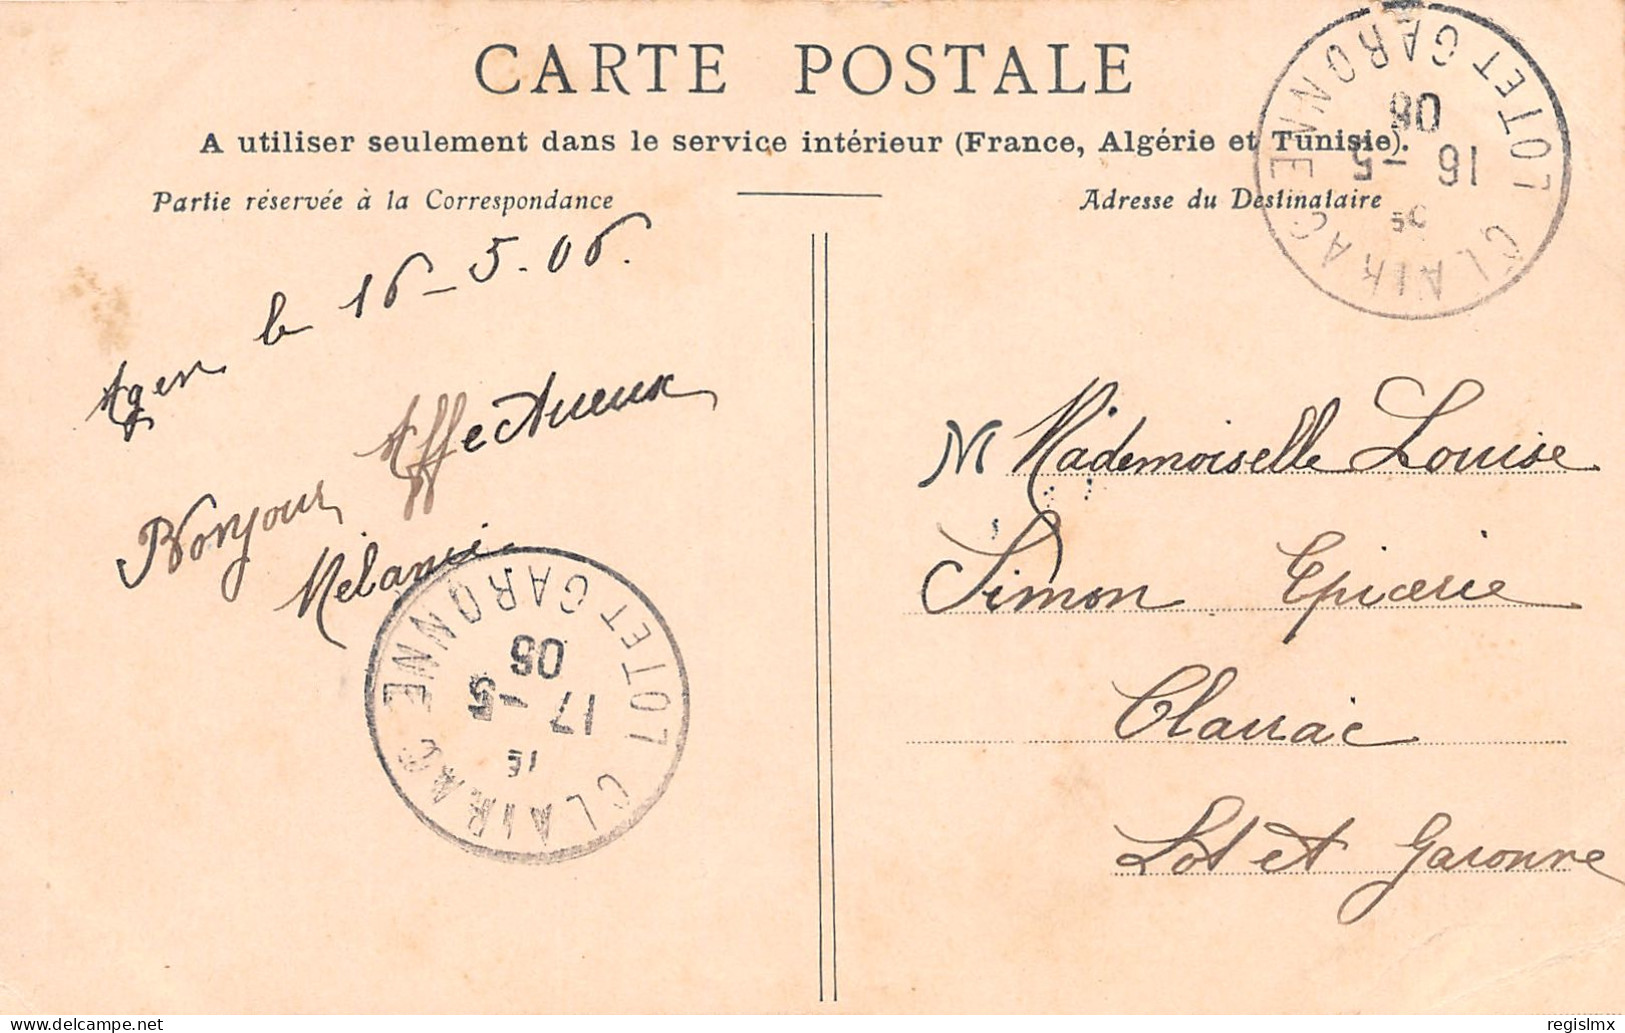 CARTE POSTALE
A utiliser seulement dans le service intérieur (France, Algérie et Tunisie).
Partie réservée à la Correspondance
Adresse du Destinataire
Agen le 16-5-06.
Bonjour Affectueux
Mélanie
M Mademoiselle Louise
Simon Epicerie
Clairac
Lot et Garonne
CLAIRAC
16 -5
06
LOT ET GARONNE
CLAIRAC
1E
17 -5
06
LOT ET GARONNE
delcampe.net
regislmx